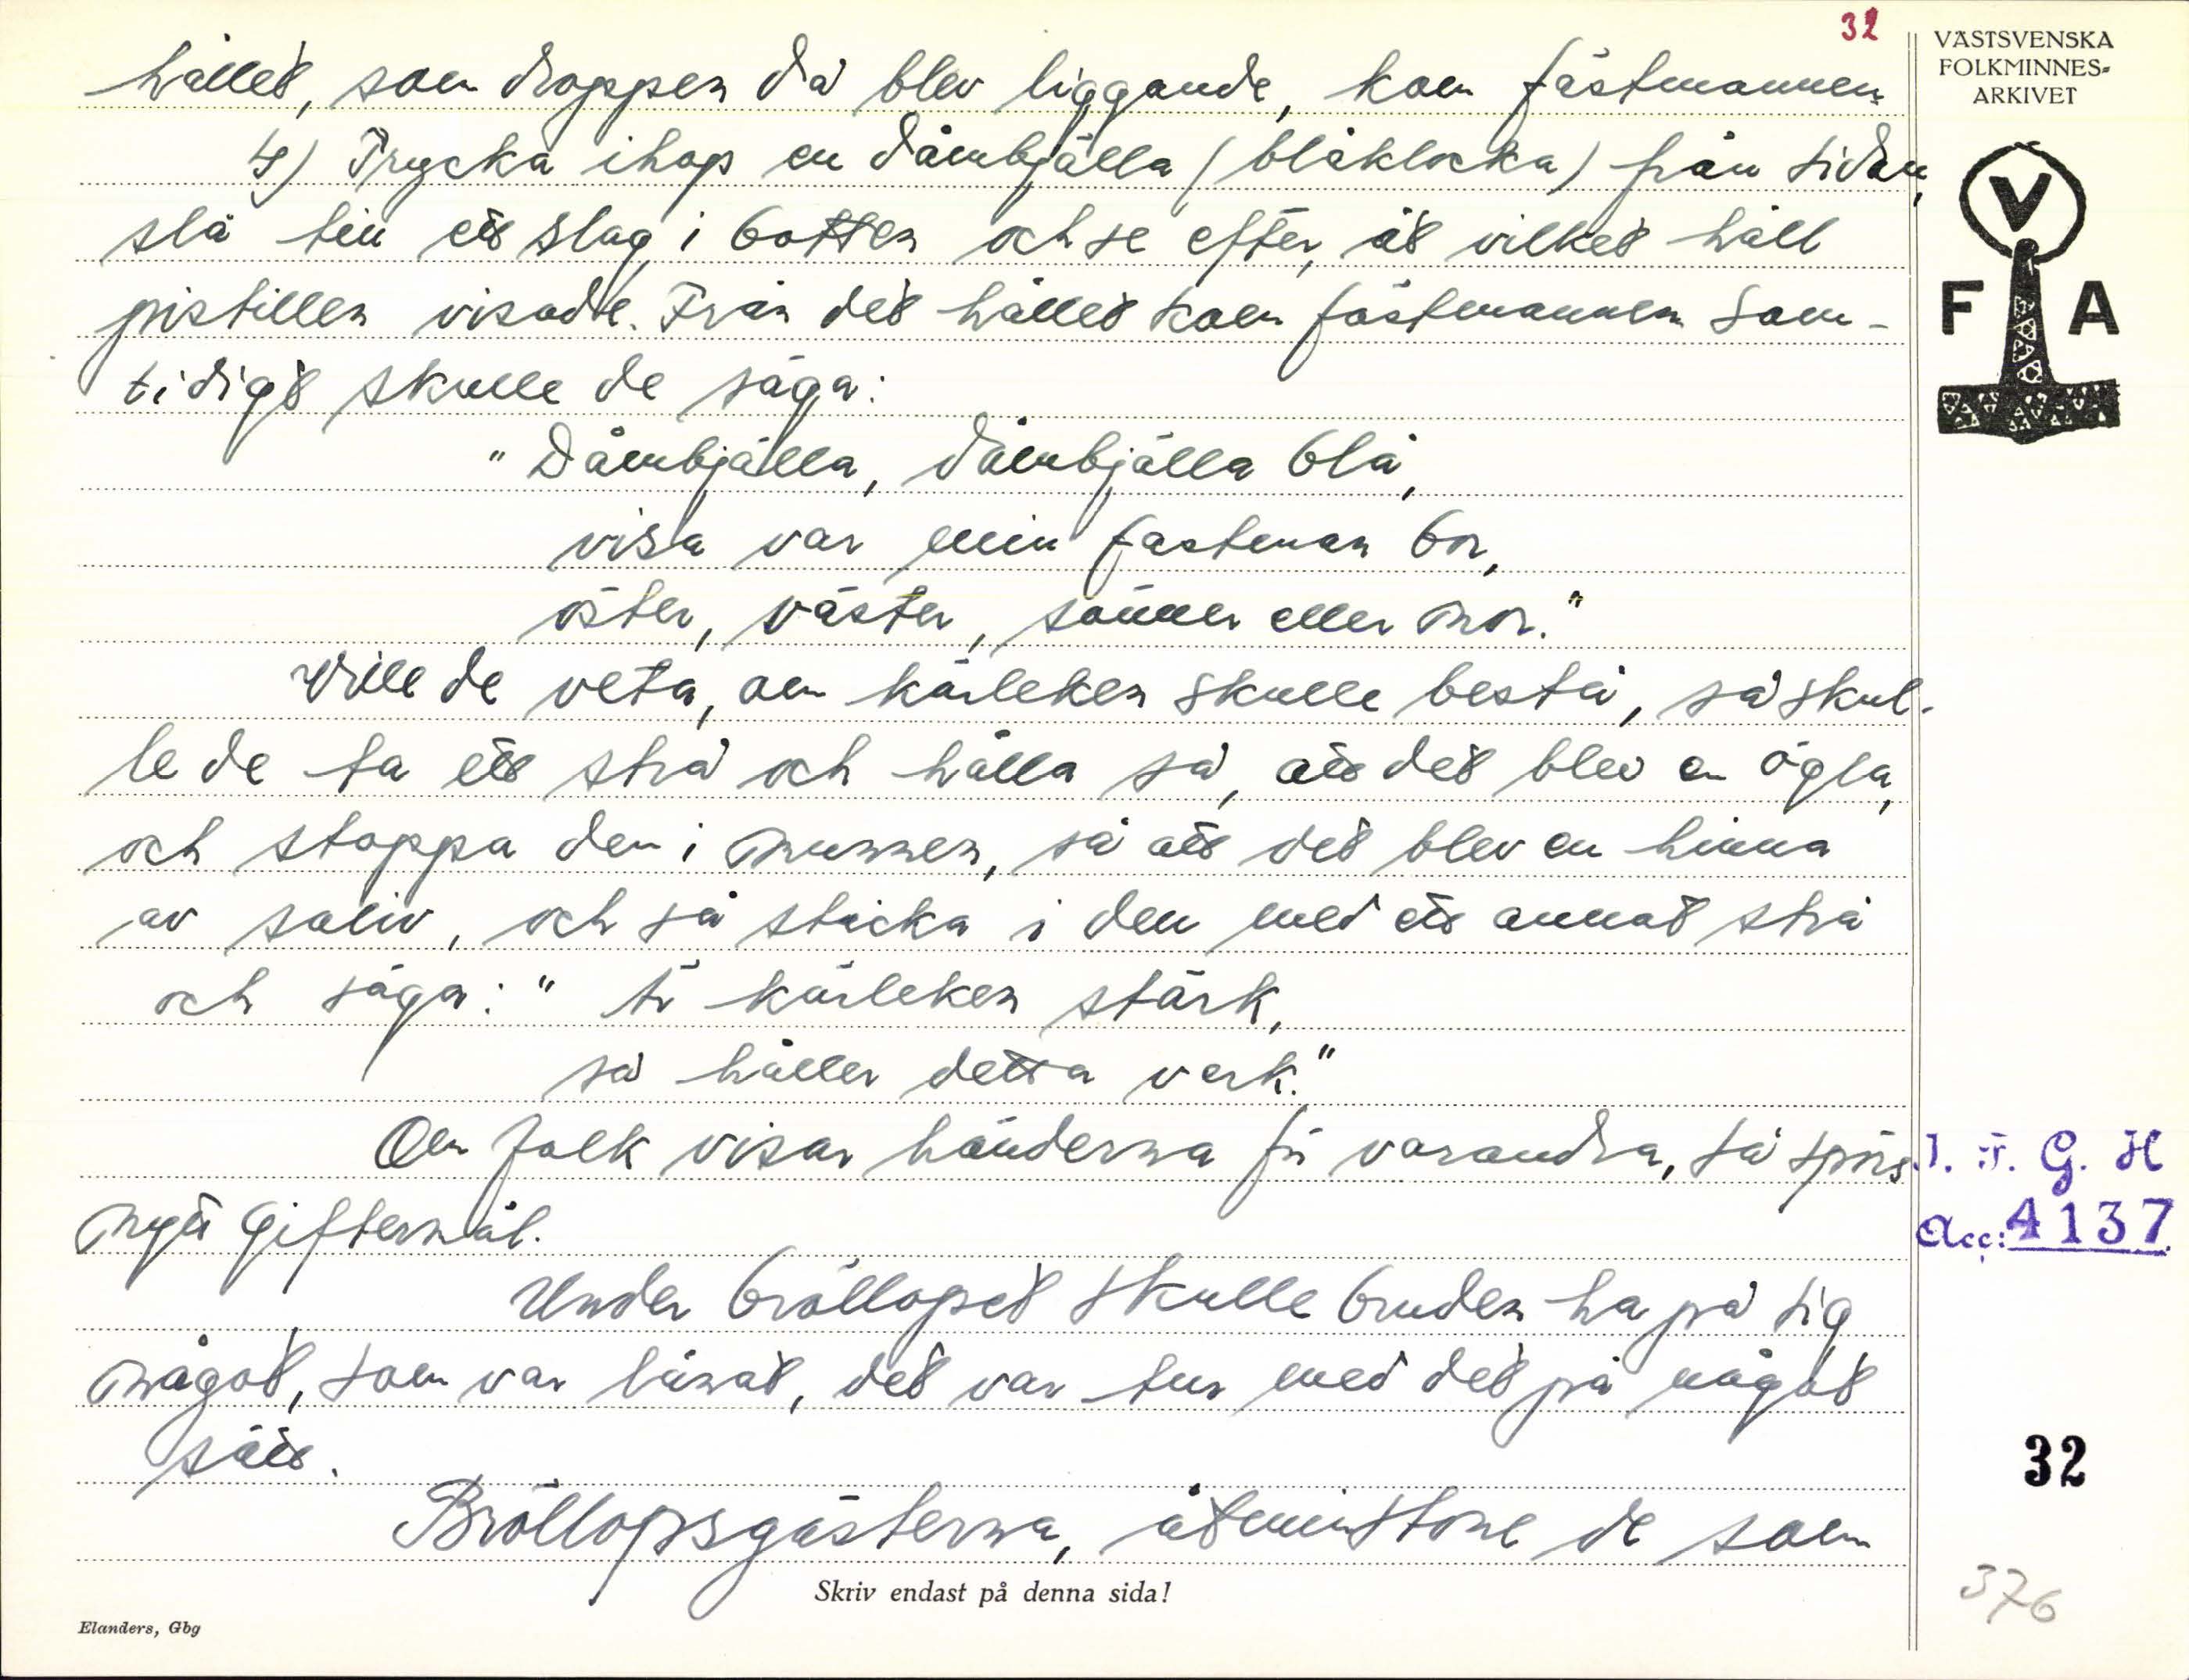 32
VÄSTSVENSKA
FOLKMINNES-
ARKIVET
V
F A
hållet, som droppen då blev liggande, kom fästmannen.
4) Trycka ihop en dåmbjälla (blåklocka) från sidan,
slå till ett slag i botten och se efter, åt vilket håll
pistillen visade. Från det hållet kom fästmannen. Sam-
tidigt skulle de säga:
"Dåmbjälla, dåmbjälla blå,
visa var min fästman bor,
öster, väster, sönner eller nor."
Ville de veta, om kärleken skulle bestå, så skul-
le de ta ett strå och hålla så, att det blev en ögla,
och stoppa den i munnen, så att det blev en hinna
av saliv, och så sticka i den med ett annat strå
och säga: " Är kärleken stärk,
så håller detta verk."
Om folk visar händerna för varandra, så spörs
nytt giftermål.
Under bröllopet skulle bruden ha på sig
något, som var lånat, det var tur med det på något
sätt.
Bröllopsgästerna, åtminstone de som
I. F. G. H
Acc: 4137
32
376
Skriv endast på denna sida!
Elanders, Gbg